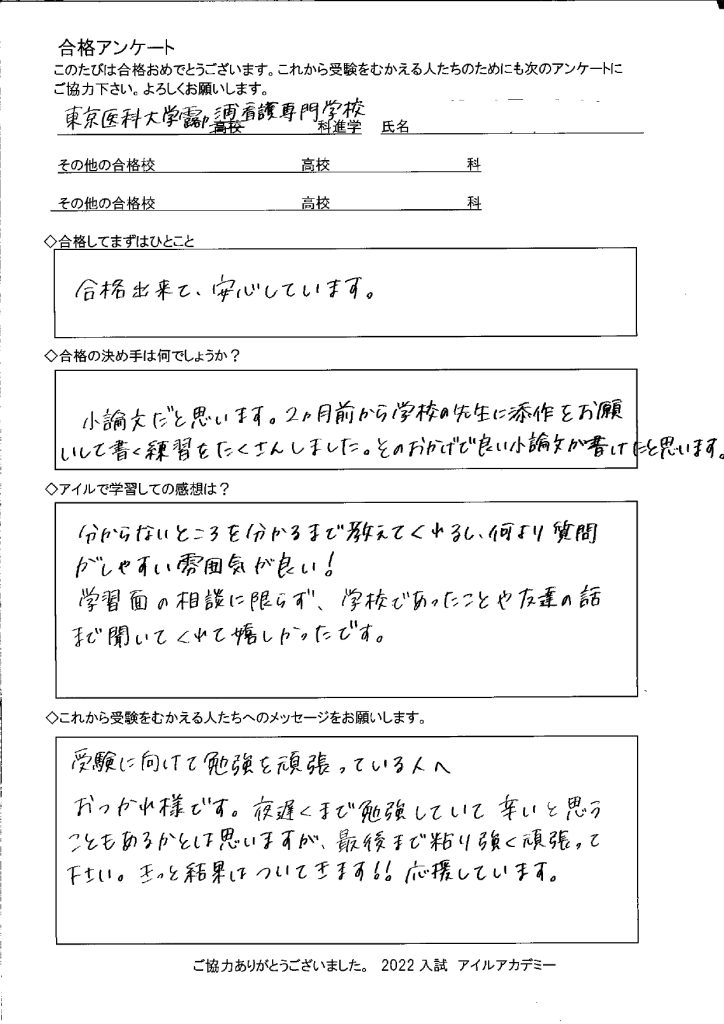 合格アンケート
このたびは合格おめでとうございます。これから受験をむかえる人たちのためにも次のアンケートに
ご協力下さい。よろしくお願いします。
東京医科大学霞ヶ浦看護専門学校
高校 科進学 氏名
その他の合格校 高校 科
その他の合格校 高校 科
◇合格してまずはひとこと
合格出来て、安心しています。
◇合格の決め手は何でしょうか？
小論文だと思います。2ヵ月前から学校の先生に添作をお願
いして書く練習をたくさんしました。そのおかげで良い小論文が書けたと思います。
◇アイルで学習しての感想は？
分からないところを分かるまで教えてくれるし、何より質問
がしやすい雰囲気が良い！
学習面の相談に限らず、学校であったことや友達の話
まで聞いてくれて嬉しかったです。
◇これから受験をむかえる人たちへのメッセージをお願いします。
受験に向けて勉強を頑張っている人へ
おつかれ様です。夜遅くまで勉強していて辛いと思う
こともあるかとは思いますが、最後まで粘り強く頑張って
下さい。きっと結果はついてきます!! 応援しています。
ご協力ありがとうございました。 2022入試 アイルアカデミー